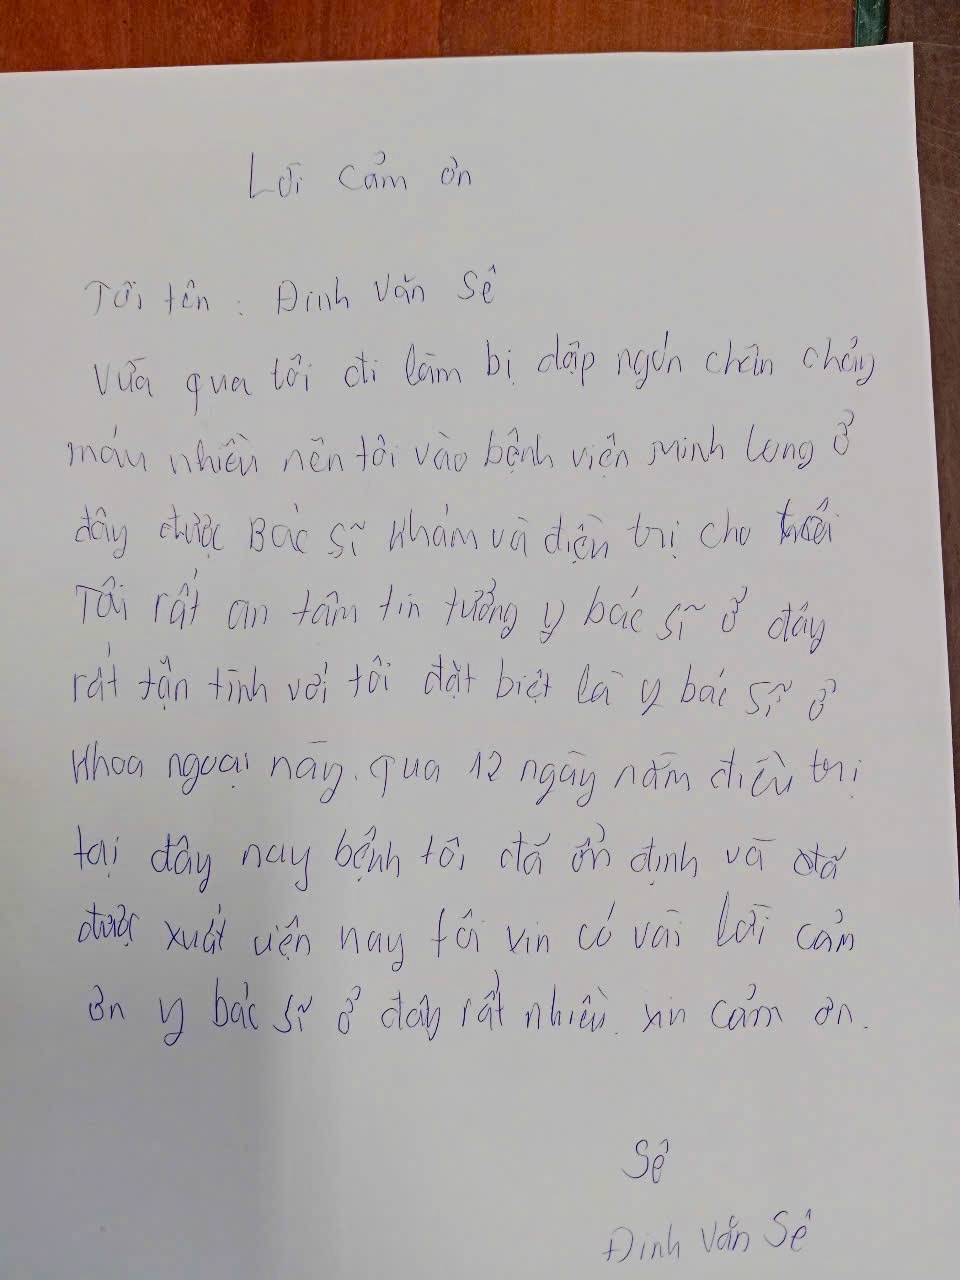 Lời cảm ơn
Tôi tên : Đinh Văn Sê
Vừa qua tôi đi làm bị dập ngón chân chảy
máu nhiều nên tôi vào bệnh viện Minh Long ở
đây được Bác sĩ khám và điều trị cho tôi
Tôi rất an tâm tin tưởng y bác sĩ ở đây
rất tận tình với tôi đặt biệt là y bác sĩ ở
khoa ngoại này. qua 12 ngày nằm điều trị
tại đây nay bệnh tôi đã ổn định và đã
được xuất viện nay tôi xin có vài lời cảm
ơn y bác sĩ ở đây rất nhiều. xin cảm ơn.
Sê
Đinh Văn Sê